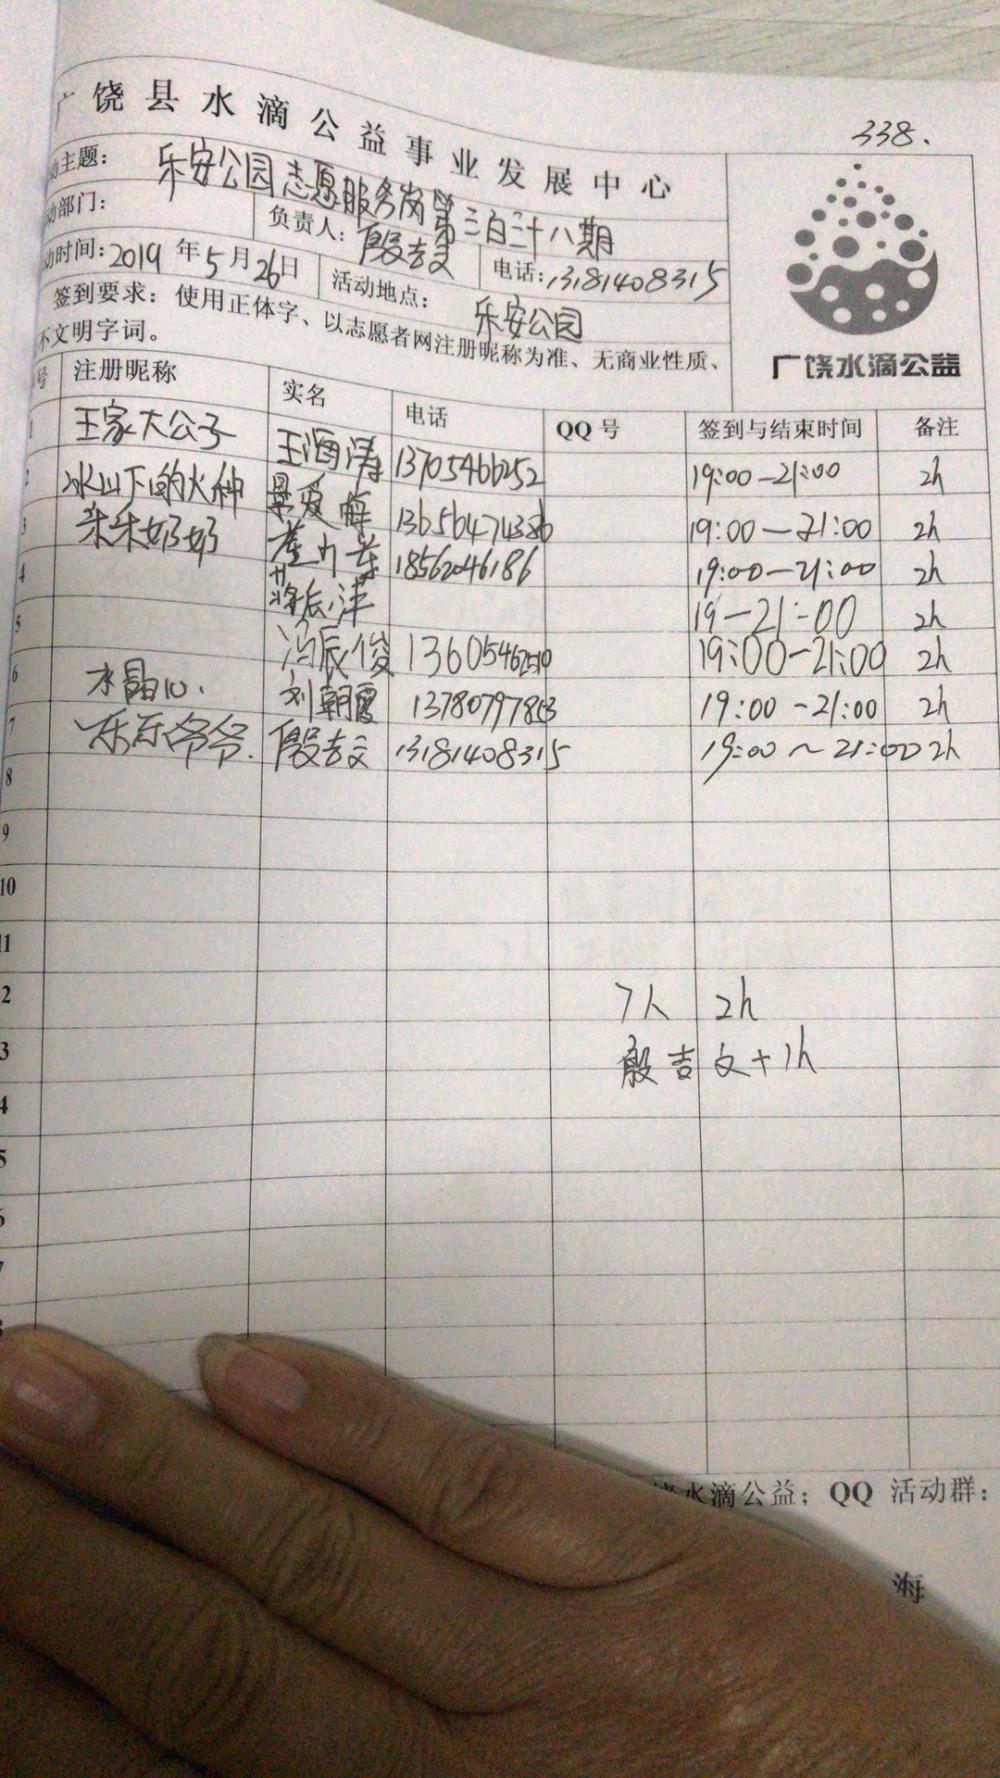 338.
广饶县水滴公益事业发展中心
动主题： 乐安公园志愿服务岗第三百三十八期
动部门： 负责人：殷吉文 电话：13181408315
动时间：2019年5月26日 活动地点： 乐安公园
签到要求：使用正体字、以志愿者网注册昵称为准、无商业性质、
不文明字词。
广饶水滴公益
号 注册昵称 实名 电话 QQ号 签到与结束时间 备注
1 王家大公子 王海涛 13705466252 19:00-21:00 2h
2 冰山下的火种 19:00-21:00 2h
3 朵朵奶奶 18562046186 19:00-21:00 2h
4 19-21:00 2h
5 冯辰俊 19:00-21:00 2h
6 水晶心. 刘朝霞 19:00-21:00 2h
7 乐乐爷爷. 殷吉文 13181408315 19:00~21:00 2h
8
9
10
11
2 7人 2h
3 殷吉文+1h
4
5
水滴公益；QQ 活动群：
海